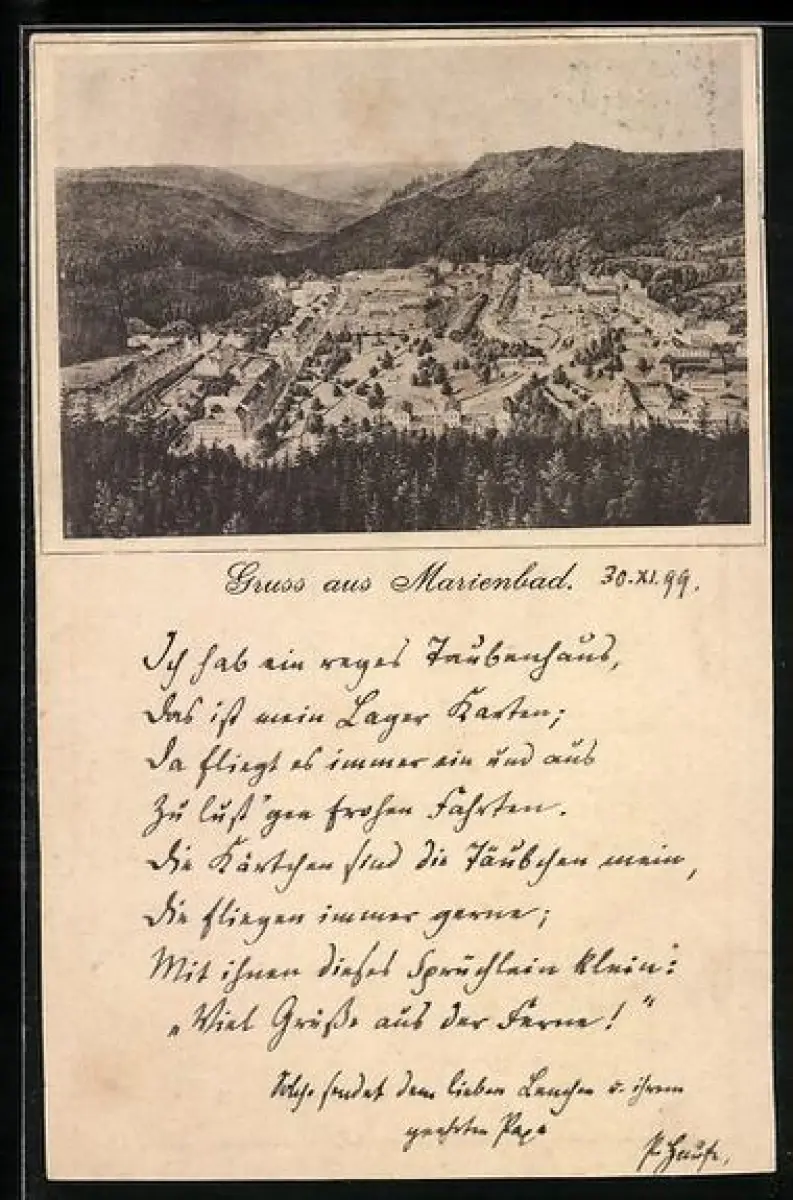 Gruss aus Marienbad. 30.XI.99.
Ich hab ein reges Taubenhaus,
Das ist mein Lager Karten;
Da fliegt es immer ein und aus
Zu lust'gen frohen Fahrten.
Die Kärtchen sind die Täubchen mein,
Die fliegen immer gerne;
Mit ihnen dieses Sprüchlein klein:
„Viel Grüße aus der Ferne!"
Solche sendet dem lieben Lenchen u. ihrem
geehrten Papa